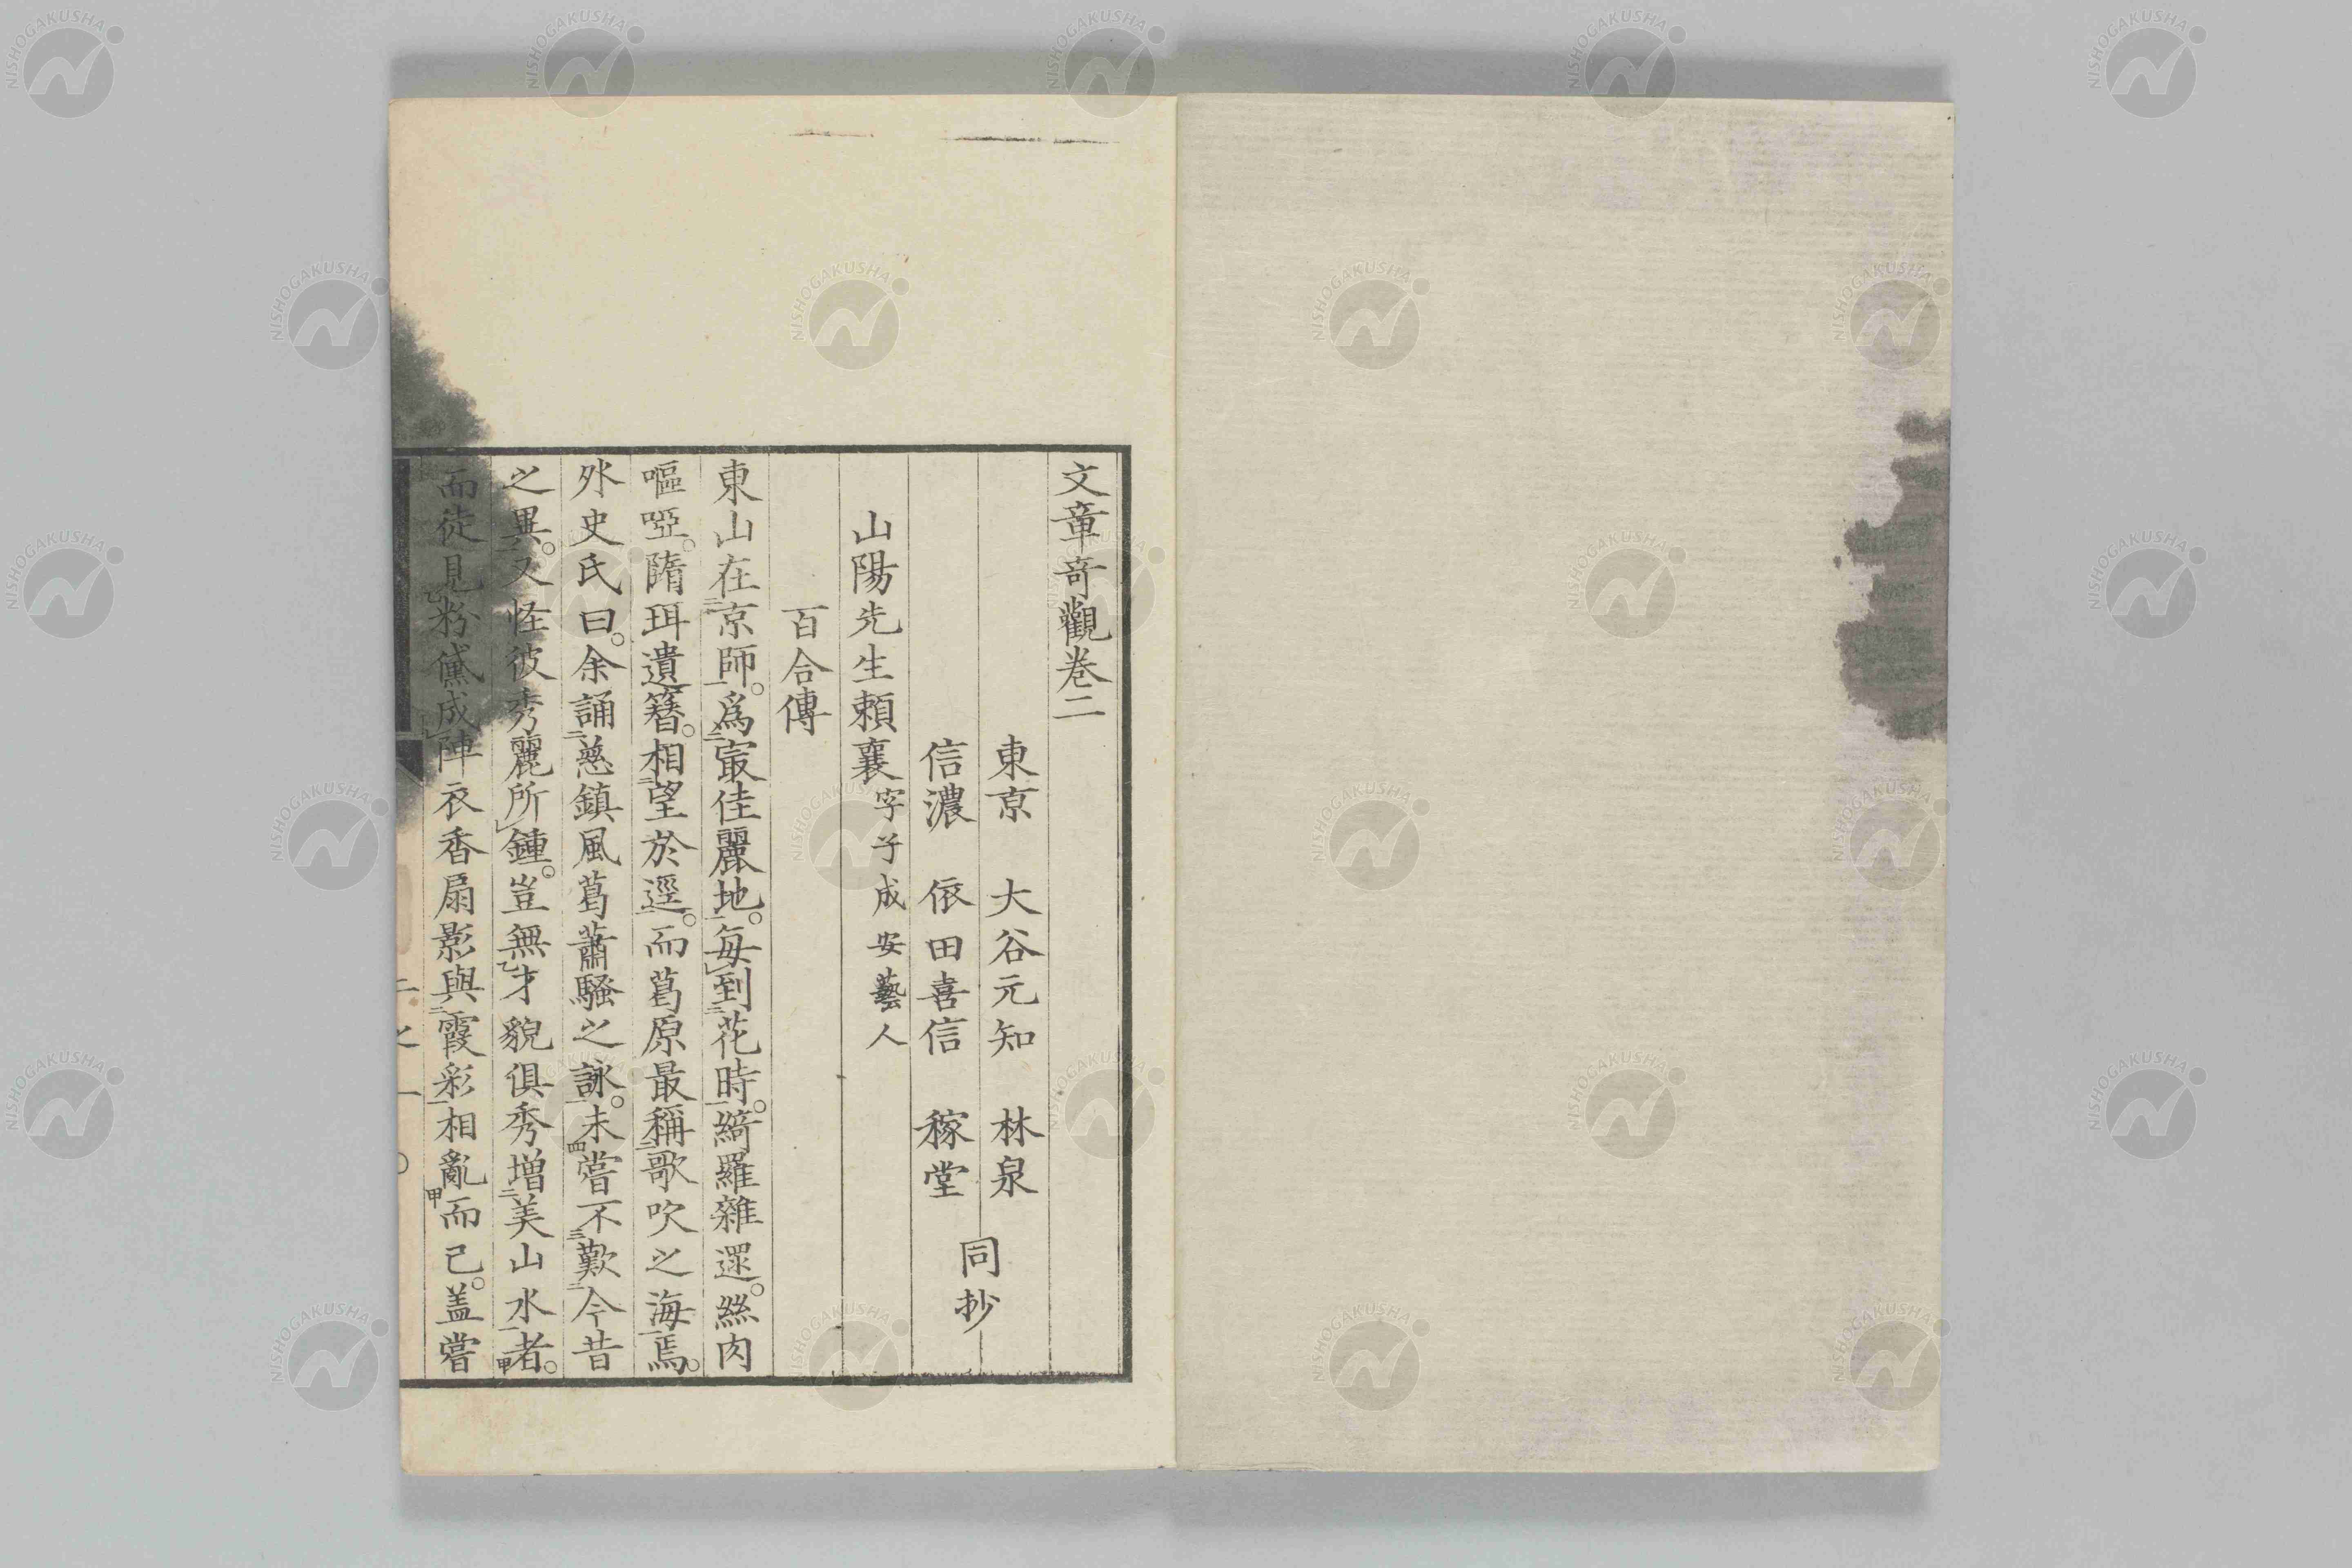 文章奇觀卷二
東京 大谷元知 林泉
信濃 依田喜信 稼堂
同抄
山陽先生賴襄 字子成 安藝人
百合傳
東山在二京師一。爲二冣佳麗地一。每レ到二花時一。綺羅雜遝。絲肉
嘔啞。隋珥遺簪。相二望於逕一。而葛原最稱二歌吹之海一焉。
外史氏曰。余誦二慈鎮風葛蕭騷之詠一。未四嘗不三歎二今昔
之異一。又怪彼秀麗所レ鍾。豈無乙才貌俱秀增二美山水一者甲。
而徒見乙粉黛成レ陣衣香扇影與二霞彩一相亂甲而已。盖嘗
NISHOGAKUSHA